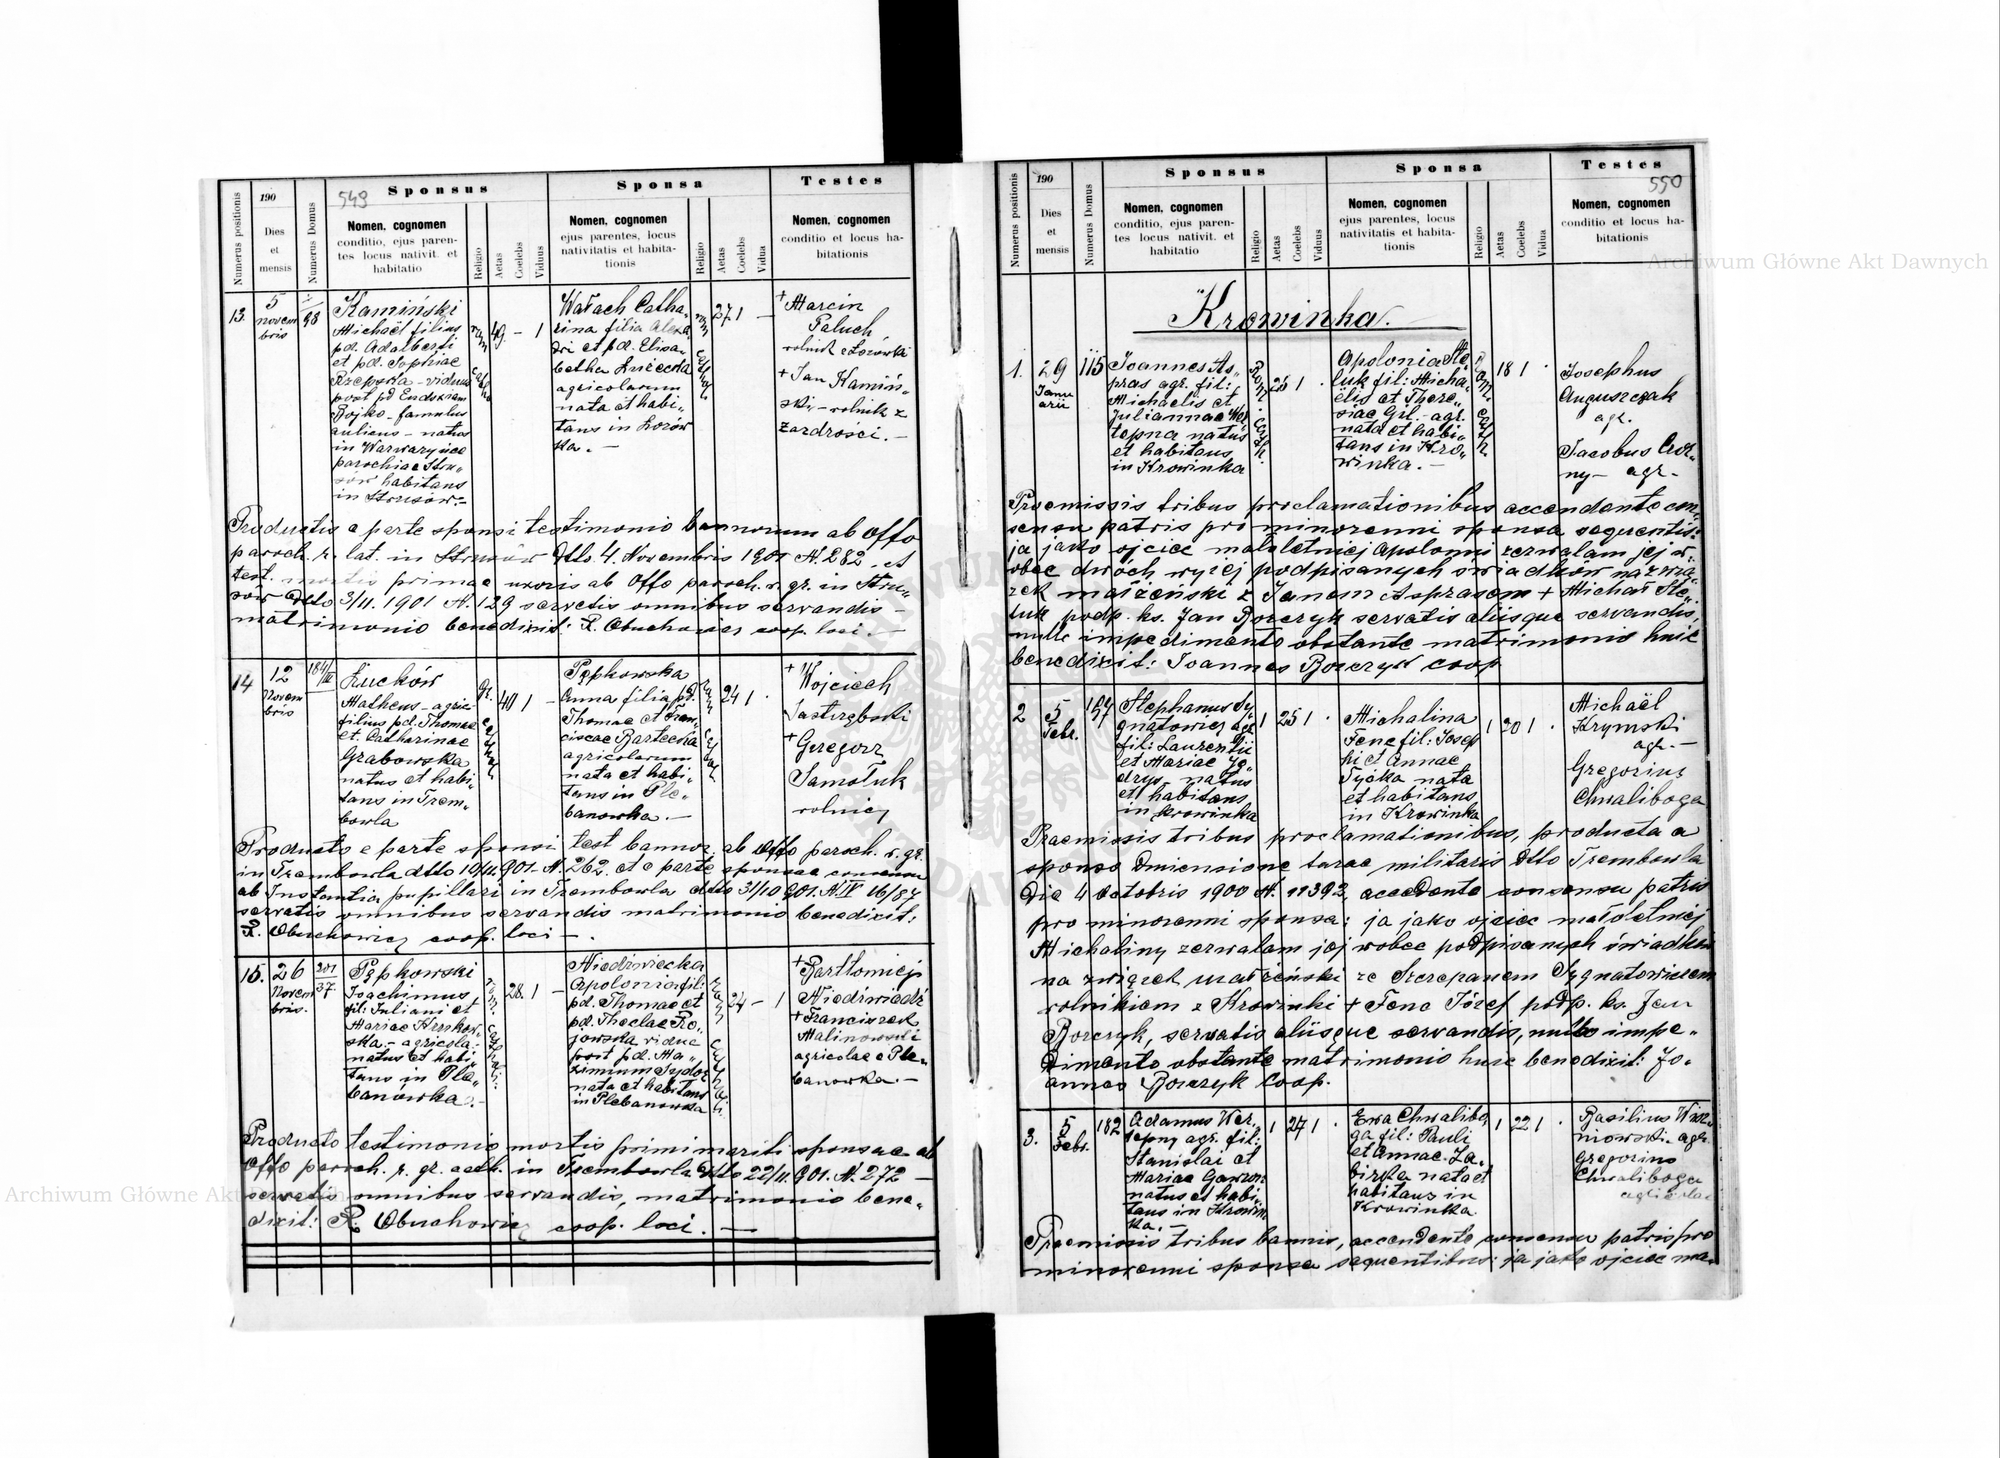 549
Numerus positionis
190
Dies
et
mensis
Numerus Domus
Sponsus
Nomen, cognomen
conditio, ejus paren-
tes locus nativit. et
habitatio
Religio
Aetas
Coelebs
Viduus
Sponsa
Nomen, cognomen
ejus parentes, locus
nativitatis et habita-
tionis
Religio
Aetas
Coelebs
Vidua
Testes
Nomen, cognomen
conditio et locus ha-
bitationis
13.
5
Novem
bris
98
Kamiński
Michaël filius
pd. Adalberti
et pd. Sophiae
Rzepka - viduus
post pd
Bojko - famulus
aulicus - natus
in Warwaryńce
parochiae Stru„
sów habitans
in Strusów. -
49. - 1
Wałach Catha„
rina filia Alexa
dri et pd. Elisa„
betha
agricolarum
nata et habi„
tans in Łozów
ka. -
27 1 -
+ Marcin
Paluch
rolnik z Łozówki
+ Jan Kamiń„
ski - rolnik z
Zazdrości. -
Productis a parte sponsi testimonio bannorum ab Offo
paroch. r. lat. in Strusów dtto 4. Novembris 1901 N. 282. et
test. mortis primae uxoris ab Offo paroch. r. gr. in Stru„
sów dtto 3/11. 1901 N. 129 servatis omnibus servandis -
matrimonio benedixit: R. Obuchowicz coop. loci. -
14
12
Novem
bris
184/III
Łuchów
Matheus - agric
filius pd. Thomae
et. Catharinae
Grabowska
natus et habi„
tans in Trem„
bowla
40 1 -
Pępkowska
Anna filia pd.
Thomae et Fran„
ciscae Bartecka
agricolarum
nata et habi„
tans in Ple„
banówka. -
24 1 .
+ Wojciech
Jastrzębski
+ Grzegorz
Samołuk
rolnicy
Producto e parte sponsi test bannor. ab Offo paroch. r. gr.
in Trembowla dtto 10/11 901 - N. 262. et e parte sponsae consensu
ab Instantia pupillari in Trembowla dtto 31/10 901. N IV 16/87
servatis omnibus servandis matrimonio benedixit:
R. Obuchowicz coop. loci -.
15.
26
Novem
bris.
201
37
Pępkowski
Joachimus
fil: Juliani et
Mariae
ska. - agricola.
natus et habi„
tans in Ple„
banówka. -
28. 1 -
Niedźwiecka
Apolonia fil:
pd. Thomae et
pd. Theclae Ro„
jowska vidua
post pd. Ma„
ximum Sydor
nata et habitans
in Plebanowka
24 - 1
+ Bartłomiej
Niedźwiedź
+ Franciszek
Malinowski
agricolae e Ple„
banowka. -
Producto testimonio mortis primi mariti sponsae ab
Offo paroch. r. gr. cath. in Trembowla dtto 22/11 901. N. 272 -
servatis omnibus servandis, matrimonio bene„
dixit: R. Obuchowicz coop. loci. -
550
Numerus positionis
190
Dies
et
mensis
Numerus Domus
Sponsus
Nomen, cognomen
conditio, ejus paren-
tes locus nativit. et
habitatio
Religio
Aetas
Coelebs
Viduus
Sponsa
Nomen, cognomen
ejus parentes, locus
nativitatis et habita-
tionis
Religio
Aetas
Coelebs
Vidua
Testes
Nomen, cognomen
conditio et locus ha-
bitationis
Krowinka.
1.
29
Janu
arii
115
Joannes As„
pras agr. fil:
Michaelis et
Juliannae Wer
tepna natus
et habitans
in Krowinka
25 1 .
Apolonia Ste
luk fil: Micha„
ëlis et There„
siae Gil - agr.
nata et habi„
tans in Kro„
winka. -
18 1 .
Josephus
Auguszczak
agr.
Jacobus Czar„
ny - agr. -
Praemissis tribus proclamationibus accendante con„
sensu patris pro minorenni sponsa sequentis:
ja jako ojciec małoletniej Apolonii zezwalam jej w„
obec dwóch wyżej podpisanych świadków na zwią„
zek małżeński z Janem Asprasem + Michał Ste„
luk podp. ks. Jan Borczyk servatis aliisque servandis,
nullo impedimento obstante matrimonio huic
benedixit: Joannes Borczyk coop
2
5
Febr.
Stephanus Sy„
gnatowicz agr.
fil: Laurentii
et Mariae Ją„
drys natus
et habitans
in Krowinka
1 25 1 .
Michalina
Fene fil: Jose„
phi et Annae
Tyćka nata
et habitans
in Krowinka
1 20 1 .
Michaël
Krymski
agr. -
Gregorius
Chwaliboga
Praemissis tribus proclamationibus, producta a
sponso dimensione taxae militaris dtto Trembowla
die 4 Octobris 1900 N. 11392, accedante consensu patris
pro minorenni sponsa: ja jako ojciec małoletniej
Michaliny zezwalam jej wobec podpisanych świadków
na związek małżeński ze Szczepanem Sygnatowiczem
rolnikiem z Krowinki + Fene Józef podp. ks. Jan
Borczyk, servatis aliisque servandis, nullo impe„
dimento obstante matrimonio huic benedixit: Jo„
annes Borczyk coop.
3.
5
Febr.
182
Adamus Wer„
tepny agr. fil:
Stanislai et
Mariae Gawron
natus et habi„
tans in Krowin
ka. -
1 27 1 .
Ewa Chwalibo
ga fil: Pauli
et Annae Za„
birka nata et
habitans in
Krowinka
1 22 1 .
Basilius
agr.
Gregorius
Chwaliboga
agricolae
Praemissis tribus bannis, accendente consensu patris pro
minorenni sponsa sequentibus: ja jako ojciec ma„
Archiwum Główne Akt Dawnych
Archiwum Główne Akt Dawnych